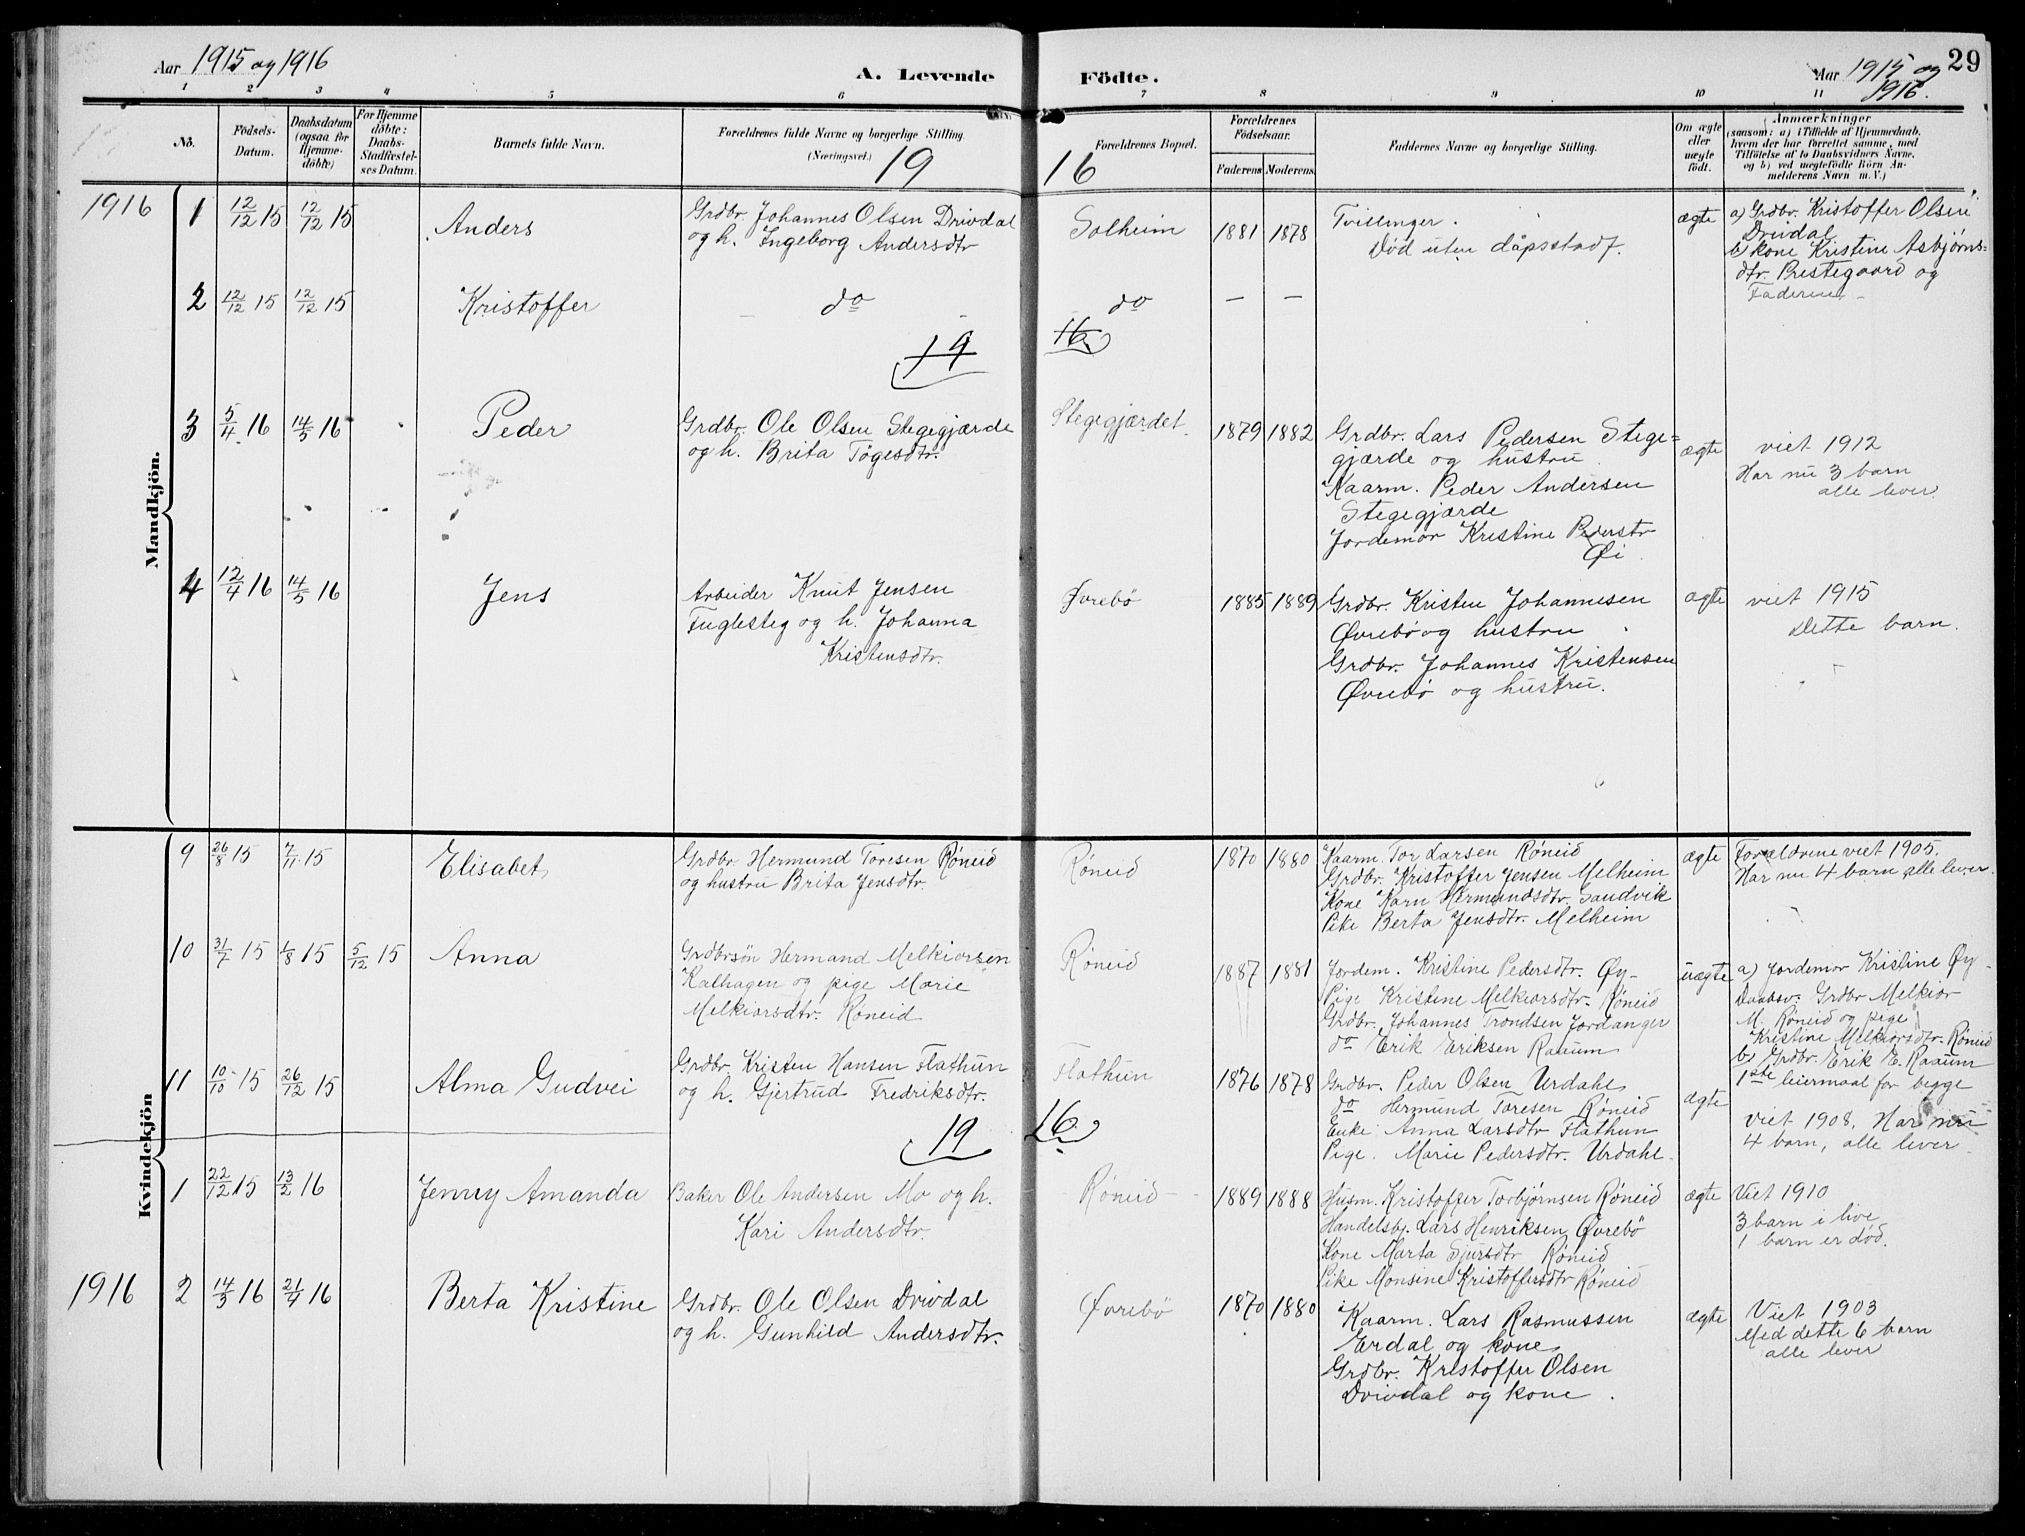 Aar 1915 og 1916
A. Levende
Födte.
Aar 1915 og 1916.
29
1 2 3 4 5 6 7 8 9 10 11
No.
Födsels-Datum.
Daabsdatum (ogsaa for Hjemme-döbte)
For Hjemme döbte: Daabs-Stadfæstel-ses Datum.
Barnets fulde Navn.
Forældrenes fulde Navne og borgerlige Stilling.
(Næringsvei.)
19
16
Forældrenes Bopæl.
Forældrenes Födselsaar.
Faderens Moderens
Faddernes Navne og borgerlige Stilling.
Om ægte eller uægte födt.
Anmærkninger
(saasom: a) i Tilfælde af Hjemmedaab, hvem der har forrettet samme, med Tilföielse af to Daabsvidners Navne, og b) ved uægtefödte Börn An-melderens Navn m. V.)
Mandkjön.
1916
1 12/12 15 12/12 15 Anders
Grdbr. Johannes Olsen Drivdal
og h. Ingeborg Andersdtr
Solheim 1881 1878
Tvillinger.
Död uten dåpsstadf.
ægte
a) Grdbr. Kristoffer Olsen
Drivdal
b) kone Kristine Asbjørns-
dtr. Prestegaard og
Faderen
2 12/12 15 12/12 15 Kristoffer
do
do
— —
19
16
3 5/4 16 14/5 16 Peder
Grdbr. Ole Olsen Stegegjærde
og h. Brita Tøgesdtr.
Stegegjærdet 1879 1882
Grdbr. Lars Pedersen Stege-
gjærde og hustru
Kaarm. Peder Andersen
Stegegjærde
Jordemor Kristine Pederstr
Øi.
ægte
viet 1912
Har nu 3 barn
alle lever
4 12/4 16 14/5 16 Jens
Arbeider Knut Jensen
Fuglesteg og h. Johanna
Kristensdtr.
Øvrebö 1885 1889
Grdbr. Kristen Johannesen
Øvrebö og hustru
Grdbr. Johannes Kristensen
Øvrebö og hustru.
ægte
viet 1915
Dette barn.
Kvindekjön
9 26/8 15 7/11 15 Elisabet
Grdbr. Hermund Toresen Röneid
og hustru Brita Jensdtr.
Röneid 1870 1880
Kaarm. Tor Larsen Röneid
Grdbr. Kristoffer Jensen Melheim
Kone Karn Hermundsdtr. Sandvik
Pike Berta Jensdtr. Melheim
ægte
Forældrene viet 1905.
Har nu 4 barn alle lever.
10 31/7 15 1/8 15 5/12 15 Anna
Grdbrsön Hermand Melkiorsen
Kalhagen og pige Marie
Melkiorsdtr. Röneid
Röneid 1887 1881
Jordem. Kristine Pedersdtr. Øy-
Pige Kristine Melkiorsdtr. Röneid
Grdbr. Johannes Trondsen Jordanger
do Erik Eriksen Raaum
uægte
a) Jordemor Kristine Øy
Daabsv. Grdbr Melkior
M. Röneid og pige
Kristine Melkiorsdtr. Röneid
b) Grdbr. Erik E. Raaum
1ste leiermaal for begge
11 10/10 15 26/12 15 Alma Gudvei
Grdbr. Kristen Hansen Flathun
og h. Gjertrud Fredriksdtr.
Flathun 1876 1878
Grdbr. Peder Olsen Urdahl
do Hermund Toresen Röneid
Enke Anna Larsdtr Flathun
Pige. Marie Pedersdtr. Urdahl.
ægte
viet 1908. Har nu
4 barn, alle lever.
19
16
1 22/12 15 13/2 16 Jenny Amanda
Baker Ole Andersen Mo og h.
Kari Andersdtr.
Röneid 1889 1888
Husm. Kristoffer Torbjørnsen Röneid
Handelsbj. Lars Henriksen Øvrebö
Kone Marta Sjursdtr Röneid
Pike Monsine Kristoffersdtr Röneid
ægte
Viet 1910
3 barn i live
1 barn er död.
1916
2 14/3 16 21/4 16 Berta Kristine
Grdbr. Ole Olsen Drivdal
og h. Gunhild Andersdtr.
Øvrebö 1870 1880
Kaarm. Lars Rasmussen
Erdal og kone
Grdbr. Kristoffer Olsen
Drivdal og kone.
ægte
Viet 1903
Med dette 6 barn
alle lever